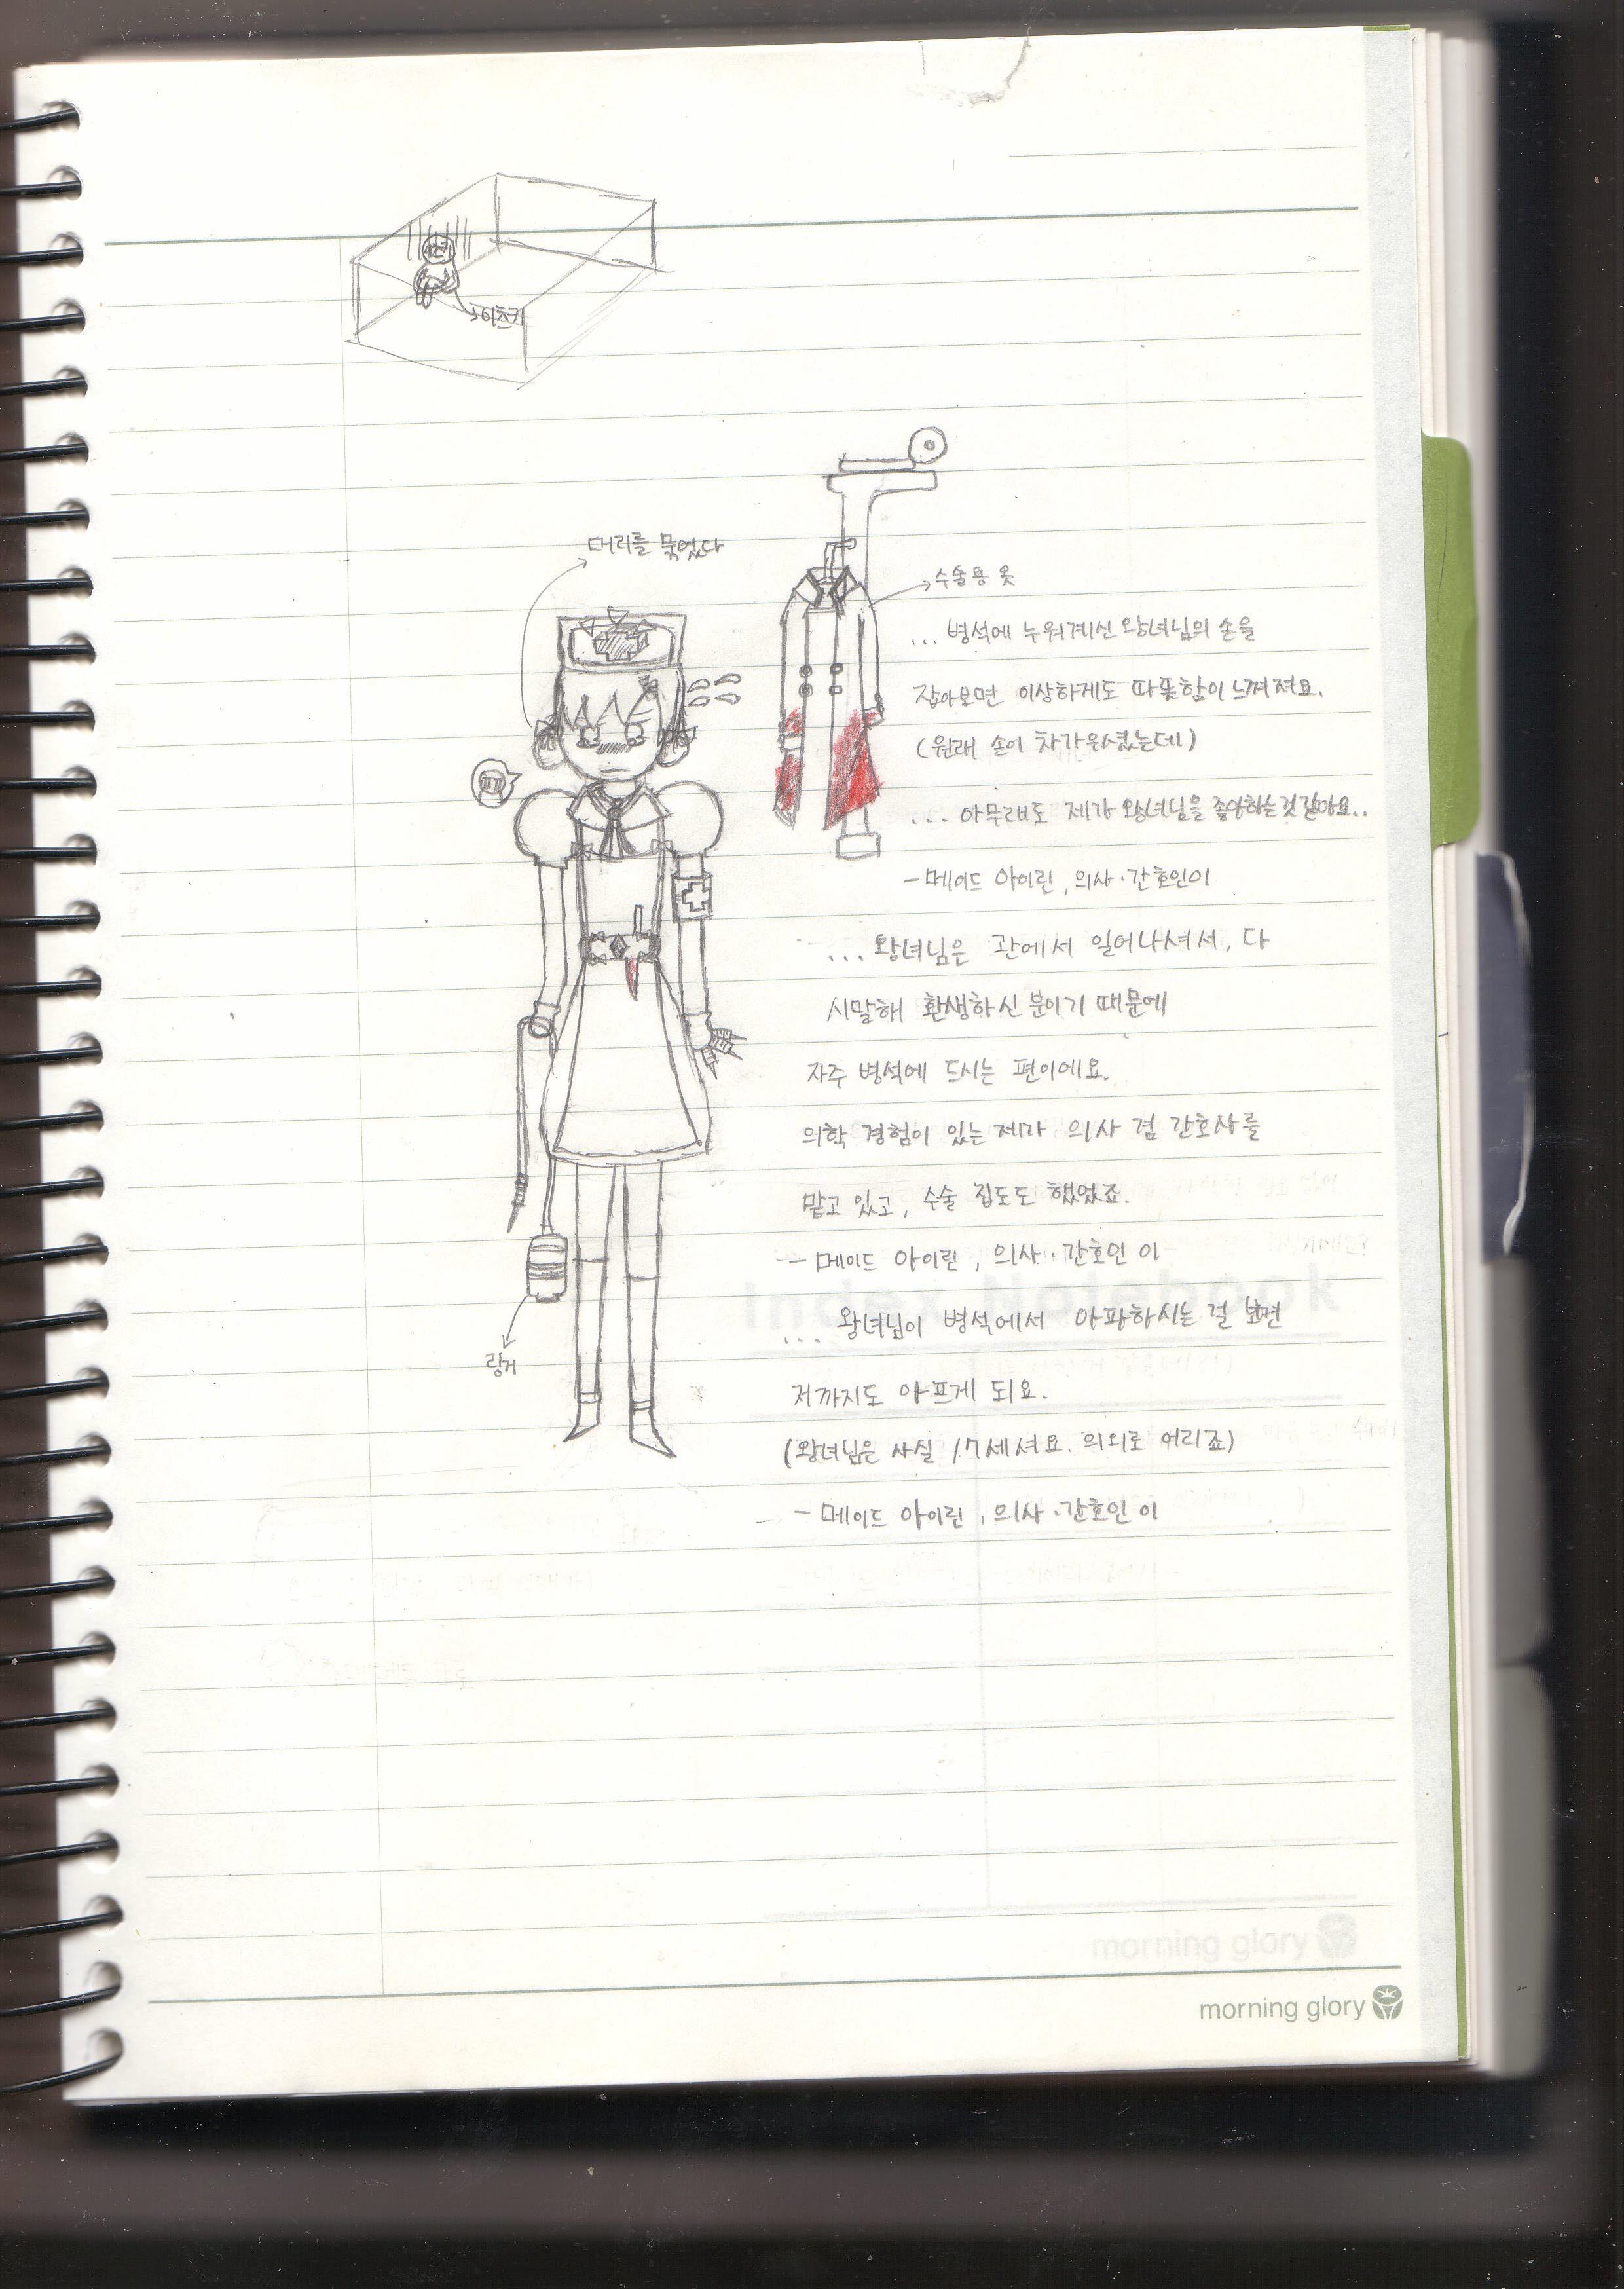 이츠키
머리를 묶었다
수술용 옷
... 병석에 누워계신 왕녀님의 손을
잡아보면 이상하게도 따뜻함이 느껴져요.
(원래 손이 차가우셨는데)
... 아무래도 제가 왕녀님을 좋아하는것같아요..
- 메이드 아이린, 의사·간호인이
... 왕녀님은 관에서 일어나셔서, 다
시말해 환생하신 분이기 때문에
자주 병석에 드시는 편이에요.
의학 경험이 있는 제가 의사 겸 간호사를
맡고 있고, 수술 집도도 했었죠.
- 메이드 아이린, 의사·간호인 이
... 왕녀님이 병석에서 아파하시는 걸 보면
저까지도 아프게 되요.
(왕녀님은 사실 17세셔요. 의외로 어리죠)
- 메이드 아이린, 의사·간호인 이
링거
Index Notebook
morning glory
morning glory